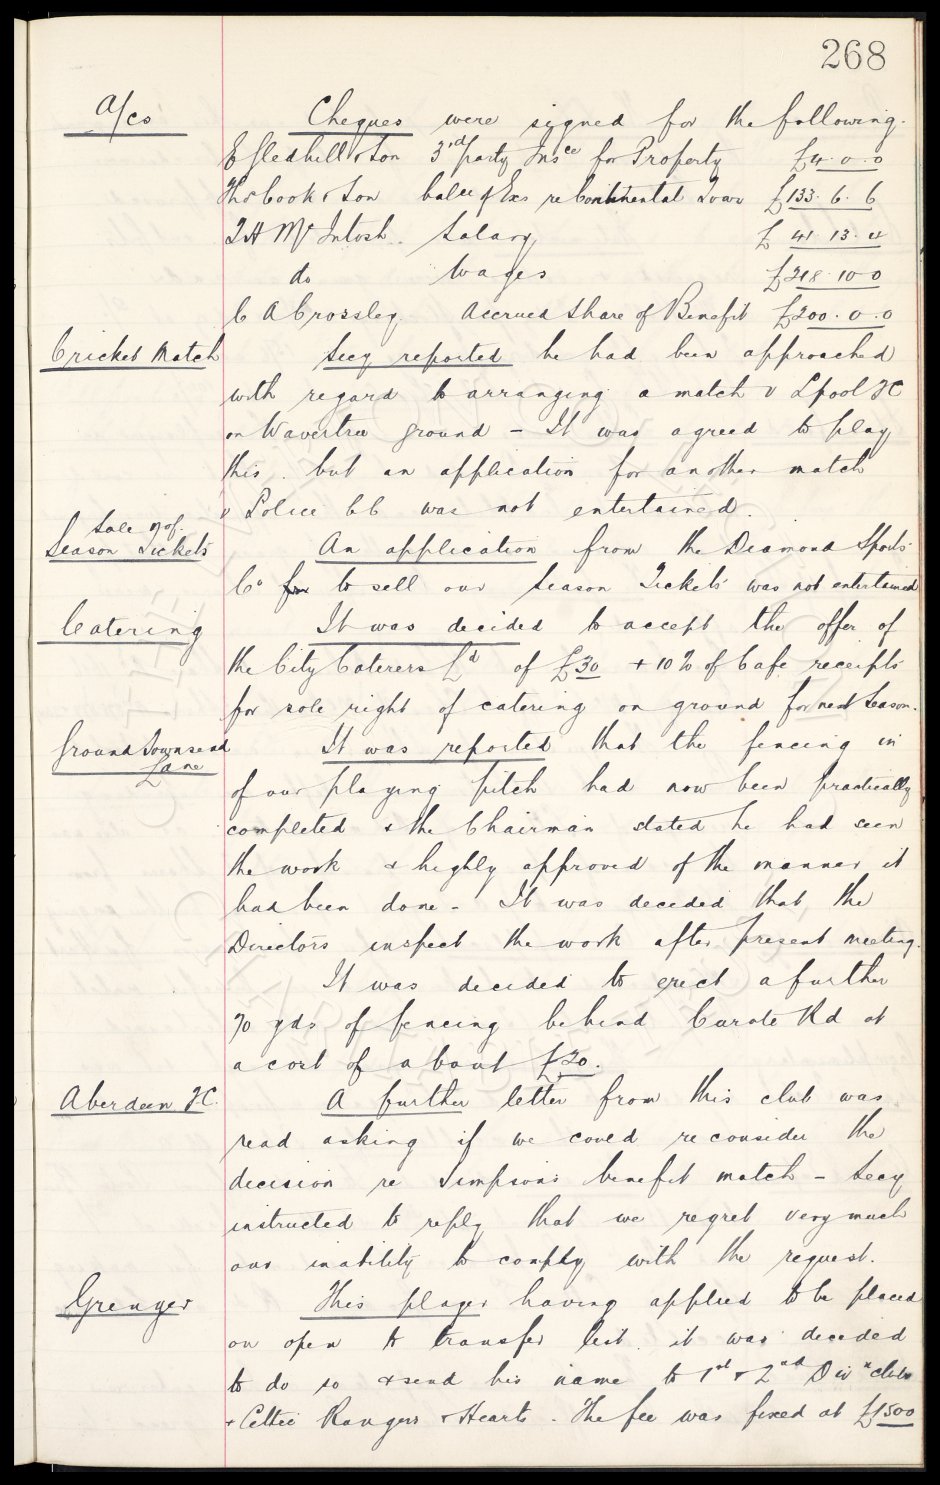 268
A/cs
Cheques were signed for the following.
E Gledhill & Son 3rd party Insce for Property £4. 0. 0
Thos Cook & Son balce of Exs re Continental Tour £133. 6. 6
T H McIntosh. Salary £ 41. 13. 4
do Wages £218. 10 0
C A Crossley Accrued Share of Benefit £200. 0. 0
Cricket Match
Secy reported he had been approached
with regard to arranging a match v L'pool FC
on Wavertree ground - It was agreed to play
this. but an application for another match
v Police CC was not entertained.
Sale of
Season Tickets
An application from the Diamond Sports
Co to sell our Season Tickets was not entertained
Catering
It was decided to accept the offer of
the City Caterers Ld of £30 + 10% of Cafe receipts
for sole right of catering on ground for next Season.
Ground Townsend
Lane
It was reported that the fencing in
of our playing pitch had now been practically
completed & the Chairman stated he had seen
the work & highly approved of the manner it
had been done - It was decided that the
Directors inspect the work after present meeting.
It was decided to erect a further
70 yds of fencing behind Curate Rd at
a cost of about £20.
Aberdeen FC.
A further letter from this club was
read asking if we could reconsider the
decision re Simpson's benefit match - Secy
instructed to reply that we regret very much
our inability to comply with the request.
Grenyer
This player having applied to be placed
on open to transfer list. it was decided
to do so & send his name to 1st & 2nd Divn clubs
& Celtic Rangers & Hearts. The fee was fixed at £1500